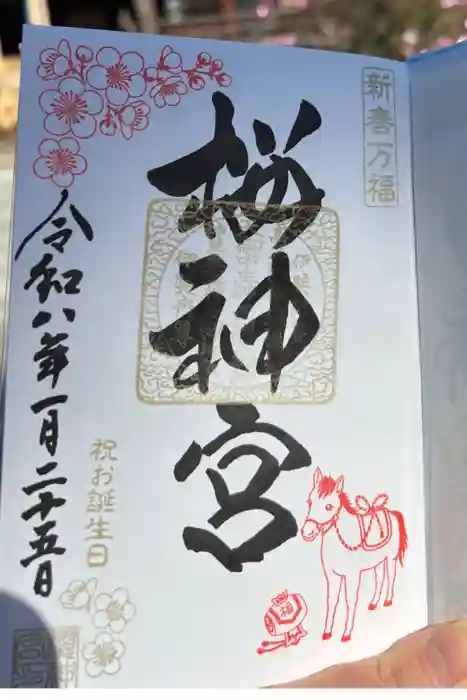 新春万福
桜神宮
令和八年一月二十五日
祝お誕生日
福